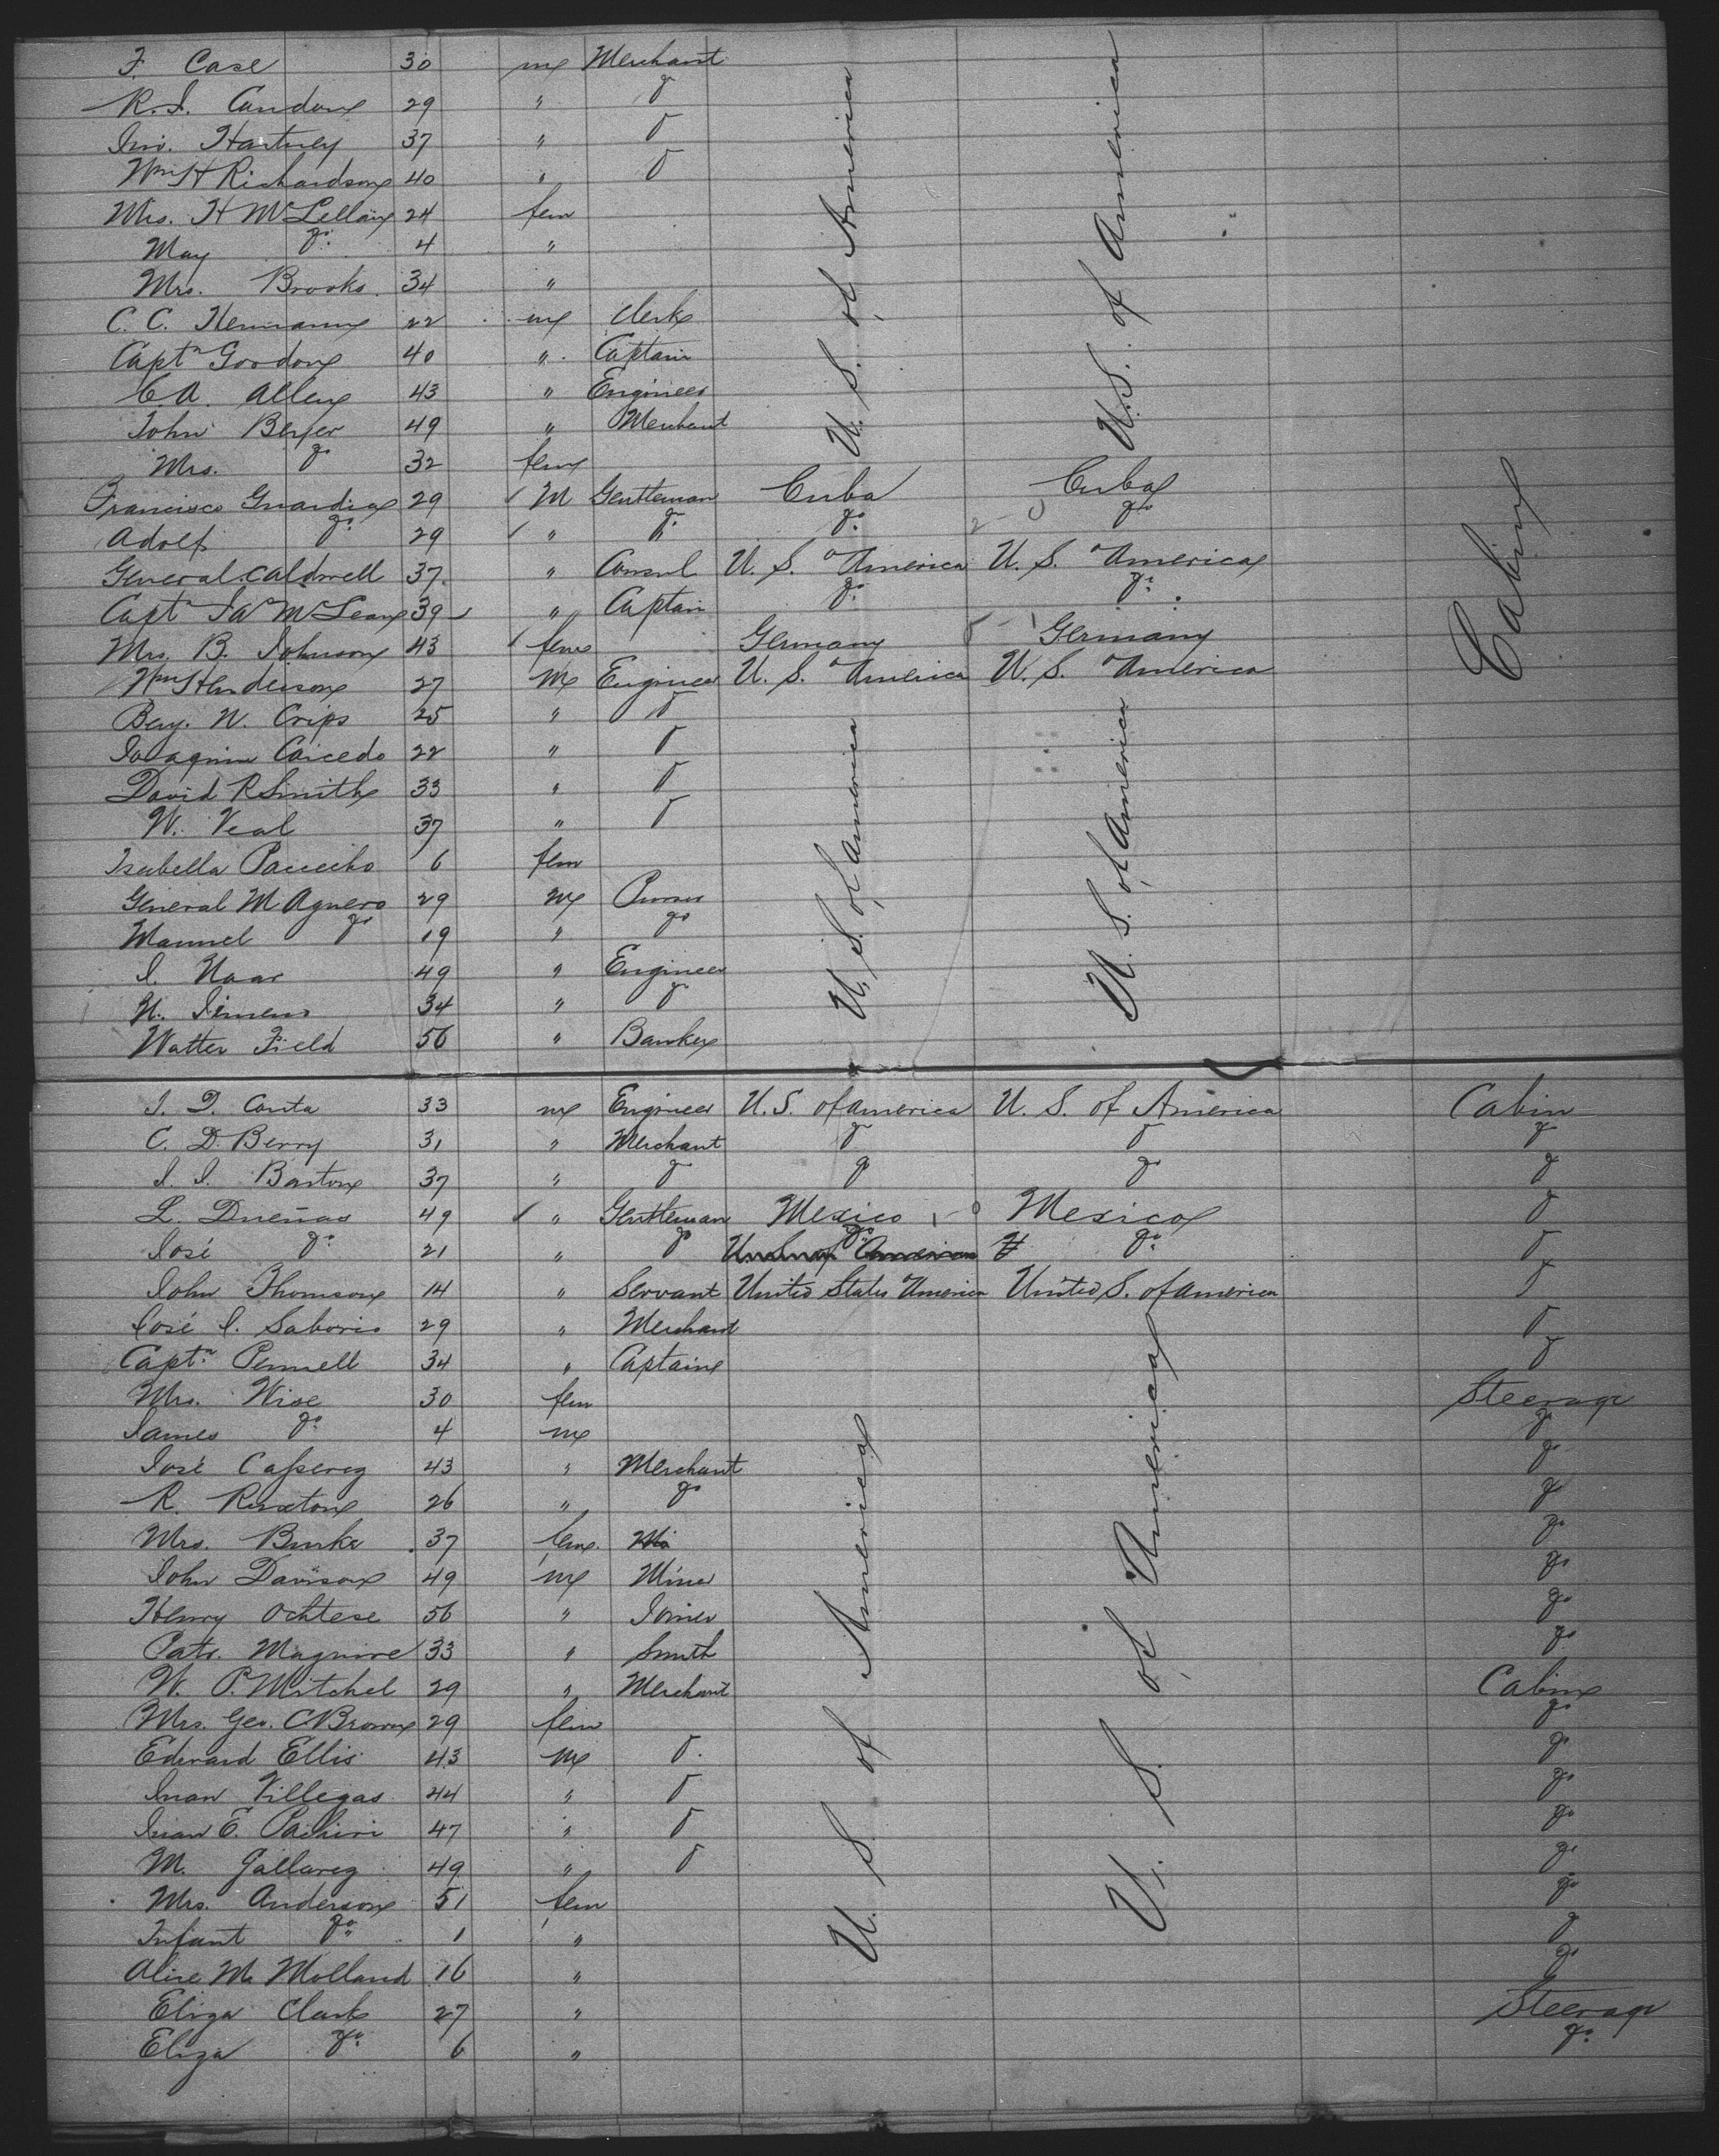 F. Case 30 m Merchant
R. S. Candon 29 " do
Jno. Hartney 37 " do
Wm H Richardson 40 " do
Mrs. H McLellan 24 fem
May do 4 "
Mrs. Brooks 34 "
C. C. Hermann 22 m Clerk
Captn Goodon 40 " Captain
C. A. Allen 43 " Engineer
John Beyer 49 " Merchant
Mrs. do 32 fem
U. S. of America U. S. of America
Francisco Guardia 29 M Gentleman Cuba Cuba
Adolf do 29 " do do do
General Caldwell 37 " Consul U. S. America U. S. America
Capt McLean 39 " Captain do do
Mrs. B. Johnson 43 fem Germany Germany
Wm Henderson 27 M Engineer U. S. America U. S. America
Benj. W. Crips 25 " do
Joaquim Caicedo 22 " do
David R Smith 33 " do
W. Veal 37 " do
Isabella 6 fem
General M Aguero 29 m do
Manuel do 19 " do
I. Naar 49 " Engineer
34 " do
Walter Field 56 " Banker
U. S. of America U. S. of America
Cabin
J. D. 33 m Engineer U. S. of America U. S. of America Cabin
C. D. Berry 31 " Merchant do do do
J. J. Barton 37 " do do do do
L. Dueñas 49 " Gentleman Mexico Mexico do
José do 21 " do do do do
John Thomson 14 " Servant United States America United S. of America do
José J. Saborio 29 " Merchant do
Captn. Pennell 34 " Captain do
Mrs. Wise 30 fem Steerage
James do 4 m do
José 43 " Merchant do
R. Ruxton 26 " do do
Mrs. Burke 37 fem do
John Davison 49 m Miner do
Henry Ochtese 56 " Joiner do
Patr. Maguire 33 " Smith do
W. P. Mitchel 29 " Merchant Cabin
Mrs. Geo. C Brown 29 fem do
Edward Ellis 43 m do do
Juan Villegas 44 " do do
Juan E. 47 " do do
M. Gallareg 49 " do do
Mrs. Anderson 51 fem do
Infant do 1 " do
Alice M. Molland 16 " do
Eliza Clark 27 " Steerage
Eliza do 6 " do
U. S. of America U. S. of America